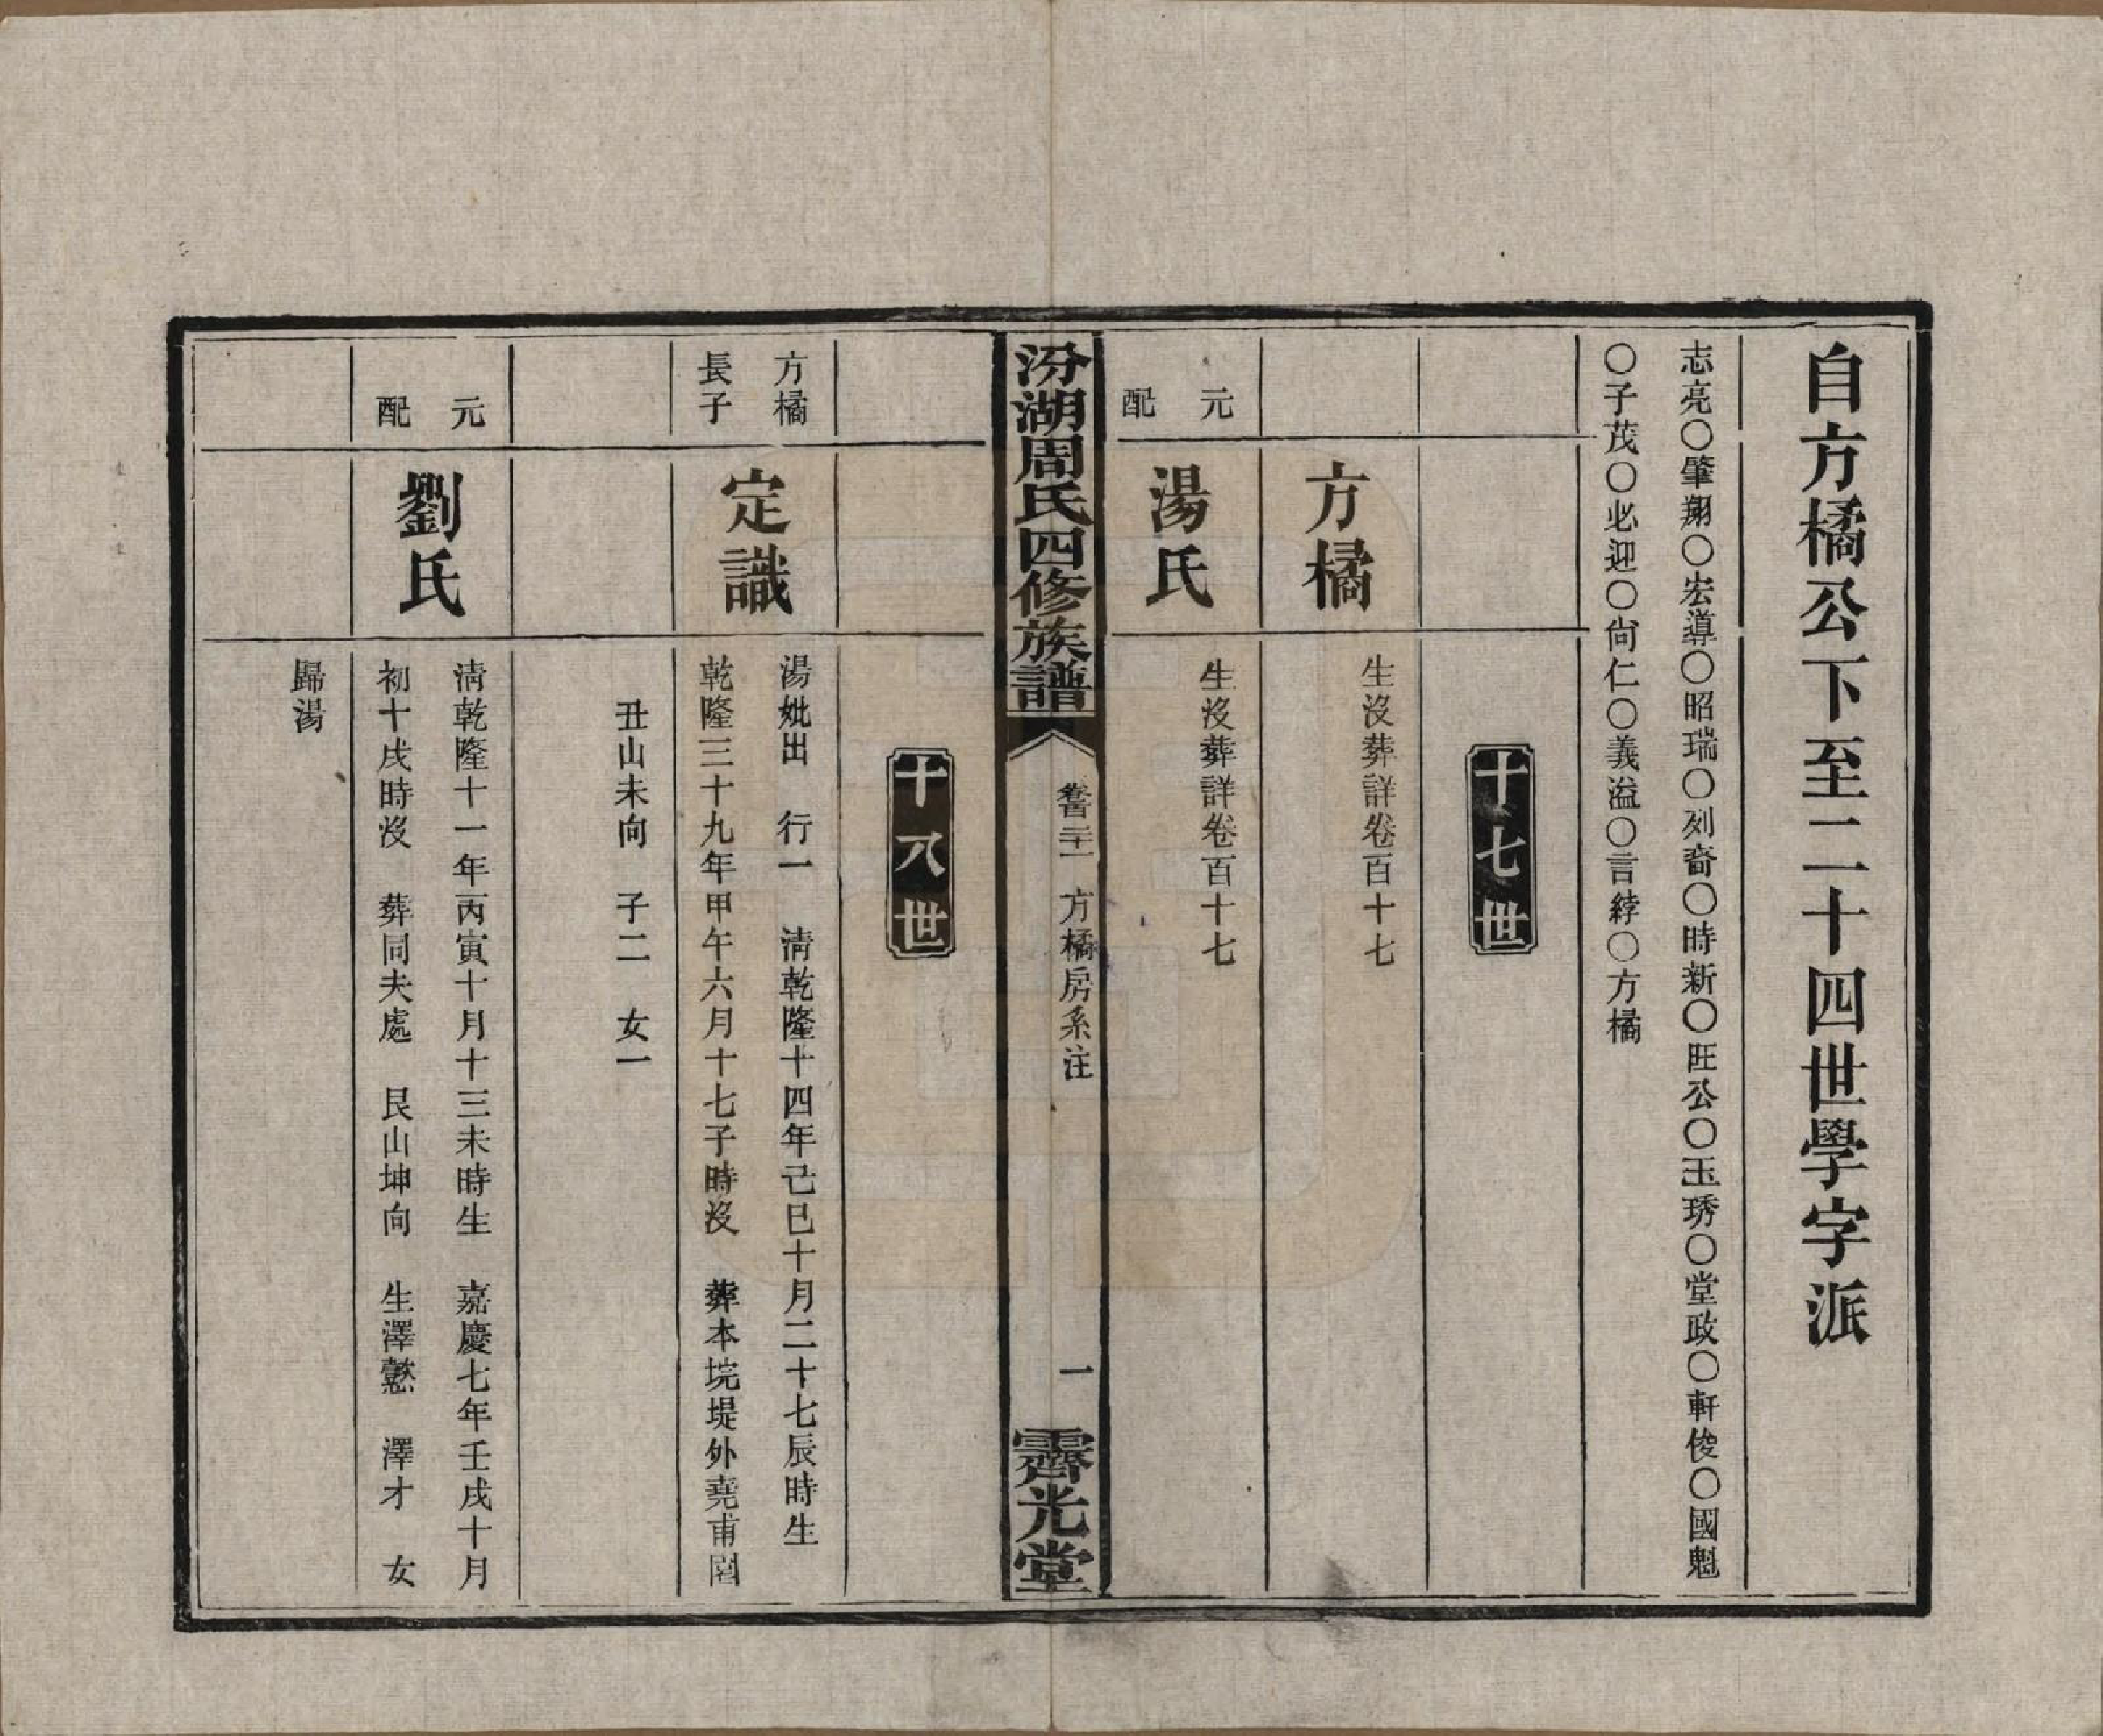 自方橘公下至二十四世學字派
志亮〇肇翔〇宏導〇昭瑞〇列裔〇時新〇旺公〇玉琇〇堂政〇軒俊〇國魁
〇子茂〇必迎〇尙仁〇義溢〇言綍〇方橘
十七世
方橘
生沒葬詳卷百十七
元配
湯氏
生沒葬詳卷百十七
汾湖周氏四修族譜
卷百二十一 方橘房系注
一
霽光堂
十八世
方橘長子
定識
湯妣出 行一 清乾隆十四年己巳十月二十七辰時生
乾隆三十九年甲午六月十七子時沒 葬本垸堤外堯甫園
丑山未向 子二 女一
元配
劉氏
清乾隆十一年丙寅十月十三未時生 嘉慶七年壬戌十月
初十戌時沒 葬同夫處 艮山坤向 生澤懋 澤才 女
歸湯